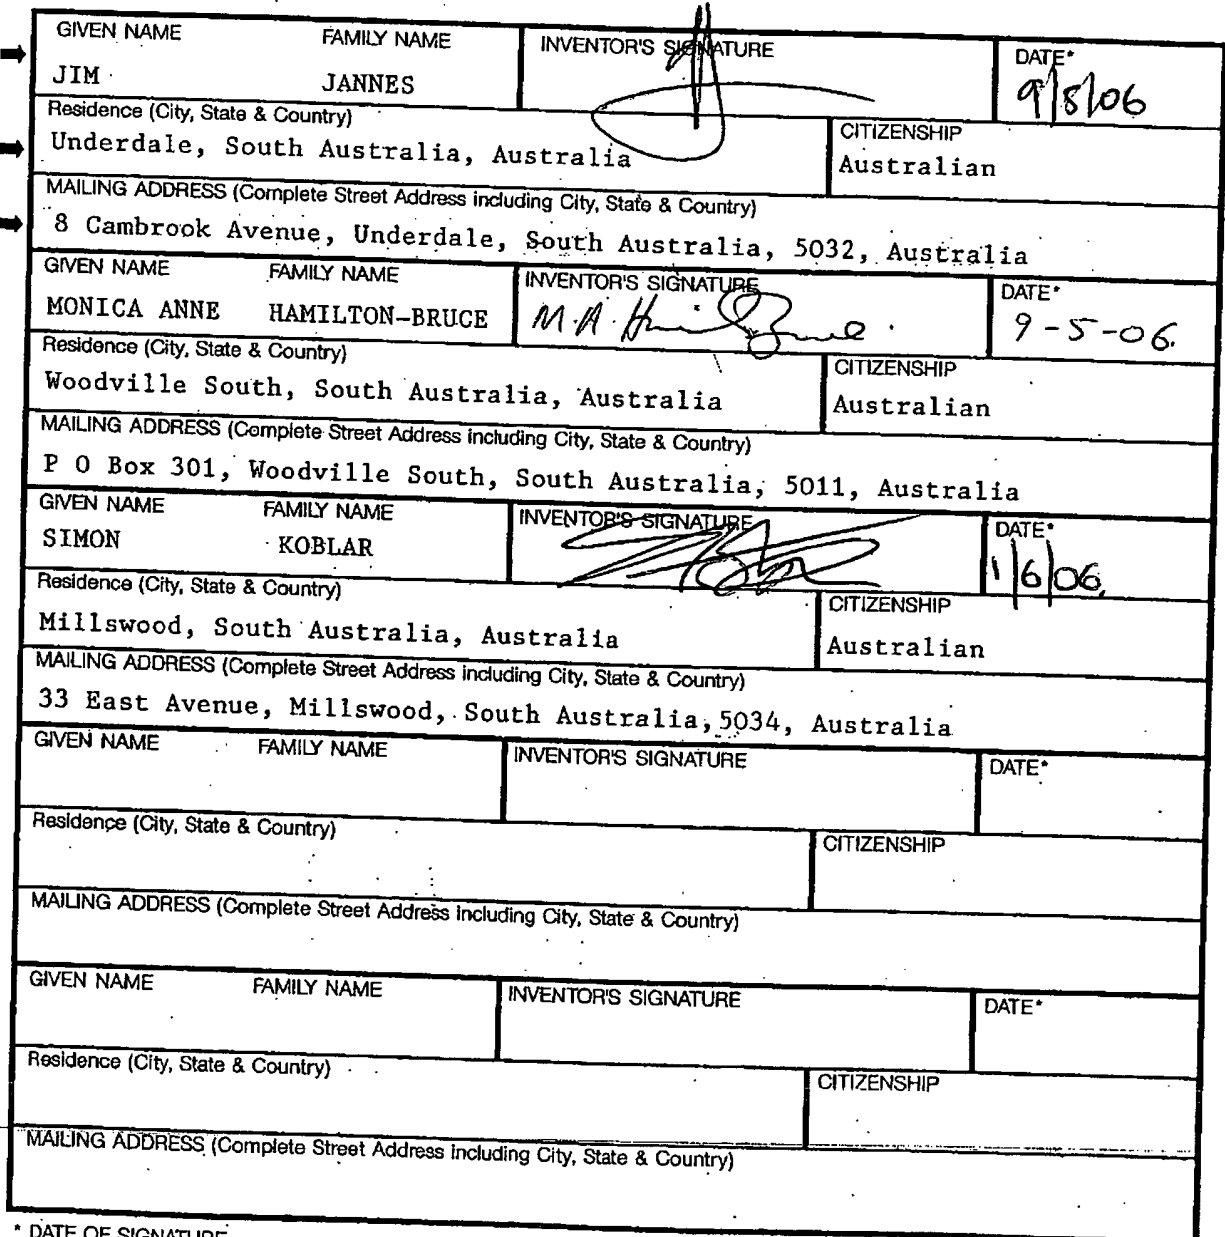 GIVEN NAME FAMILY NAME INVENTOR'S SIGNATURE DATE*
JIM JANNES 9/5/06
Residence (City, State & Country) CITIZENSHIP
Underdale, South Australia, Australia Australian
MAILING ADDRESS (Complete Street Address including City, State & Country)
8 Cambrook Avenue, Underdale, South Australia, 5032, Australia
GIVEN NAME FAMILY NAME INVENTOR'S SIGNATURE DATE*
MONICA ANNE HAMILTON-BRUCE 9-5-06.
Residence (City, State & Country) CITIZENSHIP
Woodville South, South Australia, Australia Australian
MAILING ADDRESS (Complete Street Address including City, State & Country)
P O Box 301, Woodville South, South Australia, 5011, Australia
GIVEN NAME FAMILY NAME INVENTOR'S SIGNATURE DATE*
SIMON KOBLAR 1/6/06.
Residence (City, State & Country) CITIZENSHIP
Millswood, South Australia, Australia Australian
MAILING ADDRESS (Complete Street Address including City, State & Country)
33 East Avenue, Millswood, South Australia, 5034, Australia
GIVEN NAME FAMILY NAME INVENTOR'S SIGNATURE DATE*
Residence (City, State & Country) CITIZENSHIP
MAILING ADDRESS (Complete Street Address including City, State & Country)
GIVEN NAME FAMILY NAME INVENTOR'S SIGNATURE DATE*
Residence (City, State & Country) CITIZENSHIP
MAILING ADDRESS (Complete Street Address including City, State & Country)
* DATE OF SIGNATURE